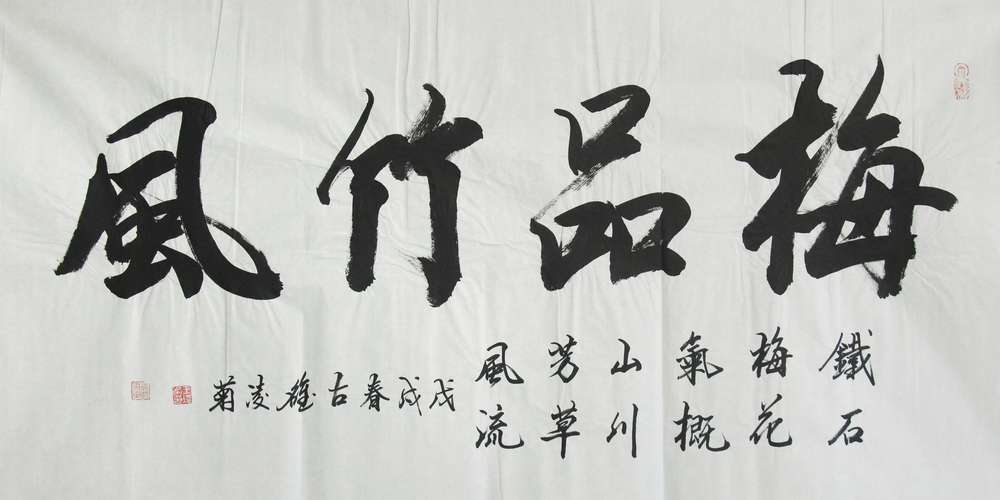 梅品竹風
鐵石
梅花
氣概
山川
芳草
風流
戊戌春古雄凌菊